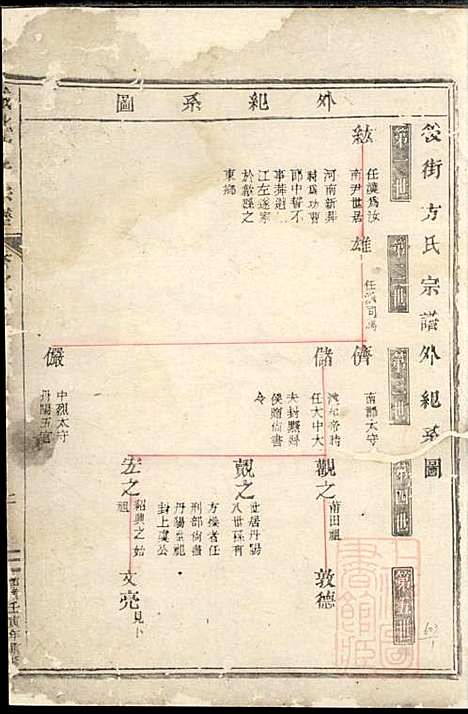 外紀系圖
後街方氏宗譜外紀系圖
第一世
第二世
第三世
第四世
第五世
紘
任漢爲汝
南尹世居
河南新莽
時爲功曹
郎中誓不
事莽避
江左遂家
於歙縣之
東鄉
雄
任漢司馬
儕
南郡太守
儲
漢和帝時
任太中大
夫封黟縣
侯贈尚書
令
儼
中烈太守
丹陽五官
觀之
莆田祖
覿之
世居丹陽
八世孫有
方操者任
刑部尚書
丹陽皇祖
封上虞公
宏之
紹興之始
祖
敦德
文亮
見卜
壬寅年